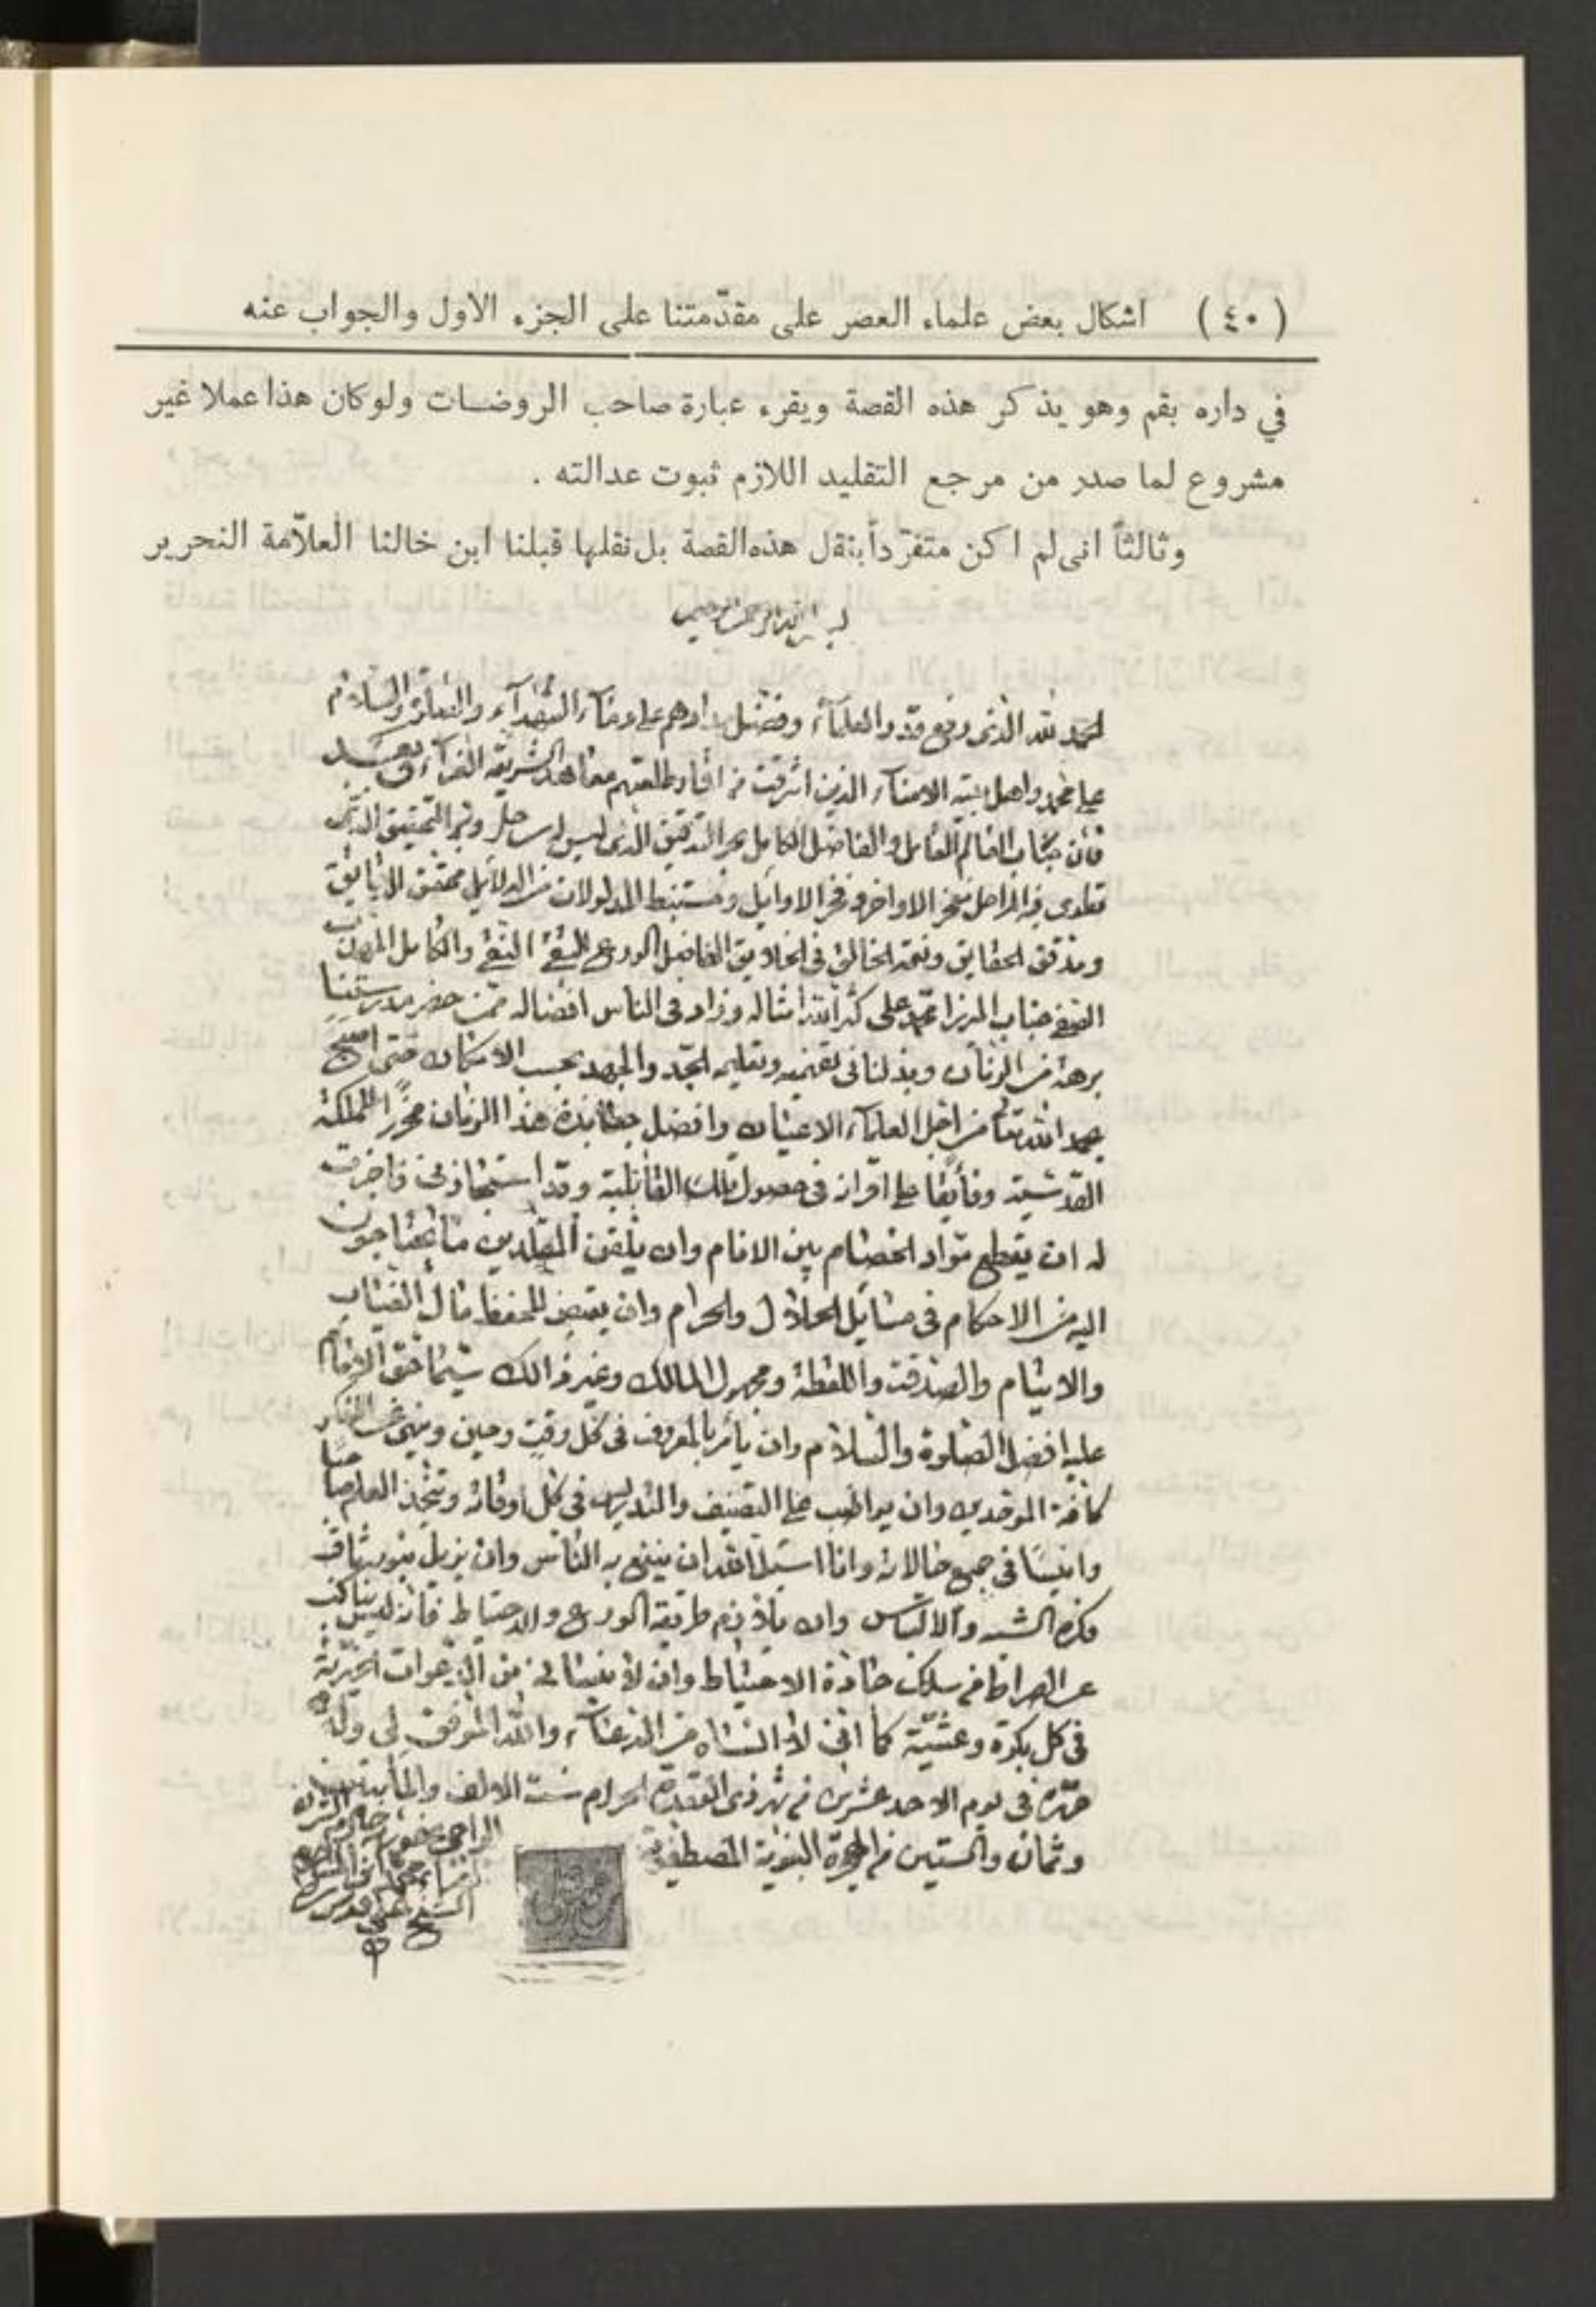 (٤٠) اشكال بعض علماء العصر على مقدّمتنا على الجزء الاول والجواب عنه
في داره بقم وهو يذكر هذه القصة ويقرء عبارة صاحب الروضات ولوكان هذا عملا غير
مشروع لما صدر من مرجع التقليد اللازم ثبوت عدالته .
وثالثاً انى لم اكن متفرّداً بنقل هذه القصة بل نقلها قبلنا ابن خالنا العلاّمة النحرير
بسم الله الرحمن الرحيم
الحمد لله الذى رفع قدر العلمآء وفضل مدادهم على دمآء الشهدآء والصلوة والسلام
على محمد واهل بيته الامنآء الذين اشرقت من طلعتهم معاهد الشريعة الغرآء وبعد
فان جناب العالم العامل والفاضل الكامل بحر التدقيق الذى ليس له ساحل وبر التحقيق الذى
فيه المراحل مفخر الاواخر وفخر الاوايل ومستنبط المدلولات من الدلايل محقق الدقايق
ومدقق الحقايق ونعمة الخالق فى الخلايق الفاضل الورع التقى النقى والكامل المهذب
الصفى جناب الميرزا محمد على كثر الله امثاله وزاد فى الناس افضاله ممن حضر مدرستنا
برهة من الزمان وبذلنا فى تفهيمه وتعليمه الجد والجهد بحسب الامكان حتى اصبح
بحمد الله تعالى من اجل العلمآء الاعيان وافضل جهابذة هذا الزمان محرزا للملكة
القدسية وفايقا على اقرانه فى حصول تلك القابلية وقد استجازنى فاجزت
له ان يقطع مواد الخصام بين الانام وان يلقن المقلدين ما يحتاجون
اليه من الاحكام فى مسايل الحلال والحرام وان يقبض للحفظ مال الغياب
والايتام والصدقة واللقطة ومجهول المالك وغير ذالك سيما حق الامام
عليه افضل الصلوة والسلام وان يأمر بالمعروف فى كل وقت وحين وينهى عن المنكر
كافة الموحدين وان يواظب على التصنيف والتدريس فى كل اوقاته ويتخذ العلم صاحبا
وانيسا فى جميع حالاته وانا اسئل الله ان ينتفع به الناس وان يزيل بنور
الشبه والالتباس وان يلازم طريقة الورع والاحتياط فانه ليس بناكب
عن الصراط من سلك جادة الاحتياط وان لا ينسانى من الدعوات الخيرية
فى كل بكرة وعشية كما انى لا انساه من الدعآء والله الموفق لى وله
حرره فى يوم الاحد عشرين من شهر ذى القعدة الحرام سنة الالف والمأتين
وثمان والستين من الهجرة النبوية المصطفوية
الراجى
الشيخ على